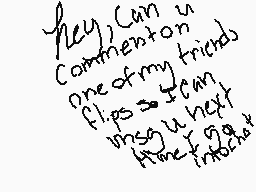 hey, can u
comment on
one of my friends
flips so I can
msg u next
time I go
into chat